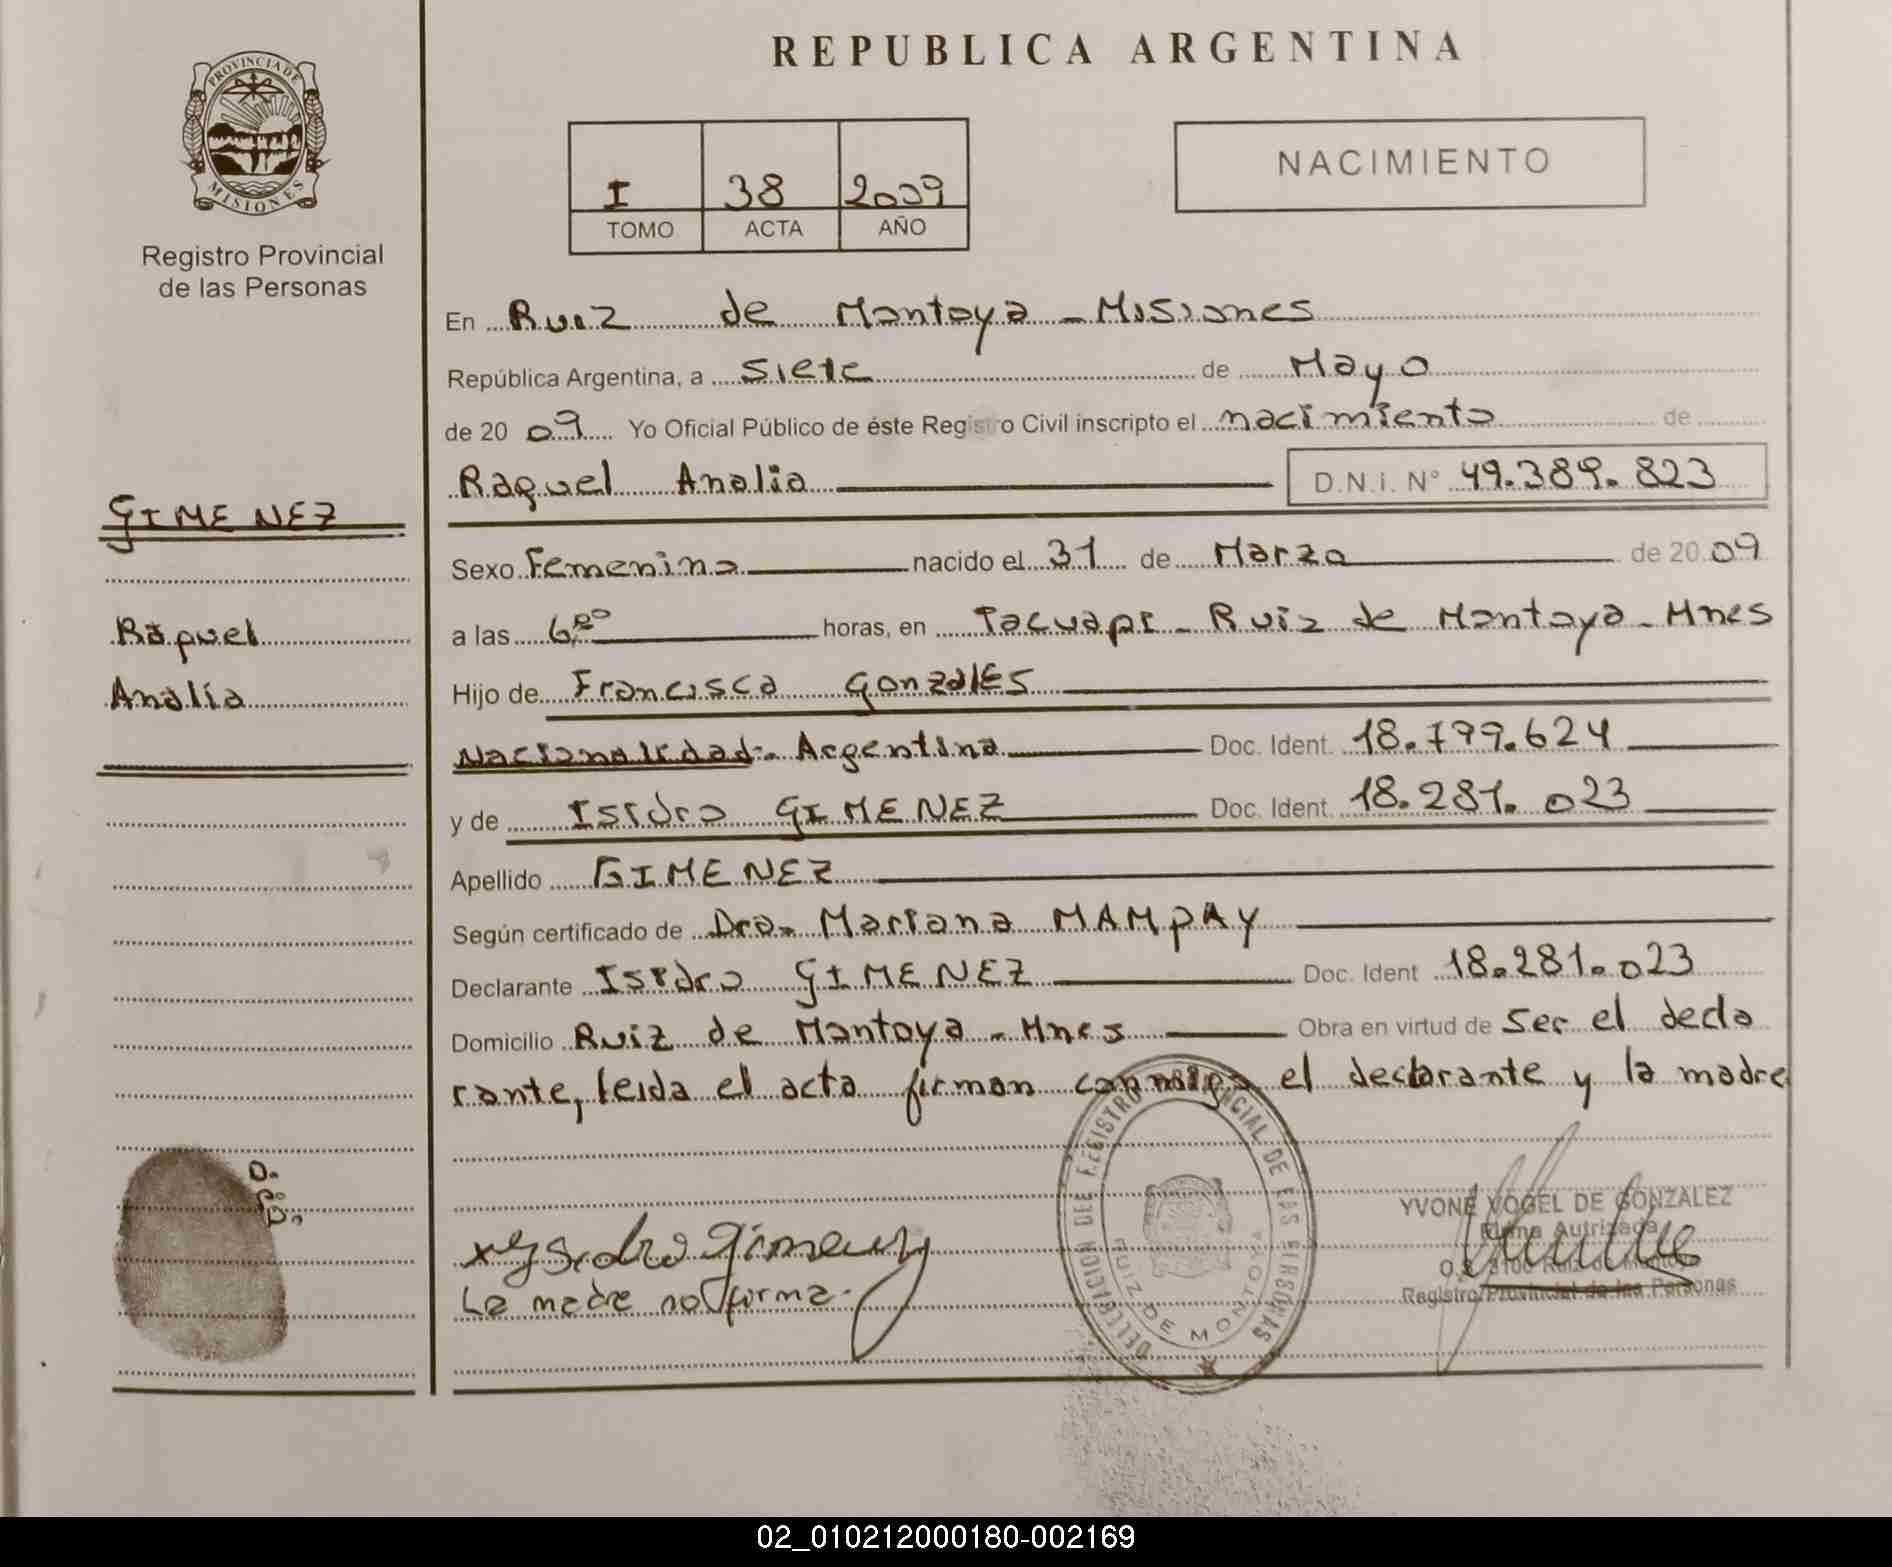 REPUBLICA ARGENTINA
PROVINCIA DE
MISIONES
Registro Provincial
de las Personas
I 38 2009
TOMO ACTA AÑO
NACIMIENTO
En Ruiz de Montoya - Misiones
República Argentina, a siete de Mayo
de 20 09 Yo Oficial Público de éste Registro Civil inscripto el nacimiento de
Raquel Analia D.N.I. N° 49.389.823
GIMENEZ
Raquel
Analía
Sexo Femenino nacido el 31 de Marzo de 20 09
a las horas, en Tacuapi - Ruiz de Montoya - Mnes
Hijo de Francisca Gonzales
Nacionalidad - Argentina Doc. Ident. 18.799.624
y de Isidro GIMENEZ Doc. Ident. 18.281.023
Apellido GIMENEZ
Según certificado de Dra. Mariana MAMPAY
Declarante Isidro GIMENEZ Doc. Ident 18.281.023
Domicilio Ruiz de Montoya - Mnes Obra en virtud de Ser el decla
rante, leida el acta firman conmigo el declarante y la madre
D.
P.
D.
x Ysidro Gimenez
La madre no firma.
REGISTRO PROVINCIAL DE LAS PERSONAS
RUIZ DE MONTOYA
YVONE VOGEL DE GONZALEZ
Firma Autrizada
Ruiz de Montoya
Registro Provincial de las Personas
02_010212000180-002169